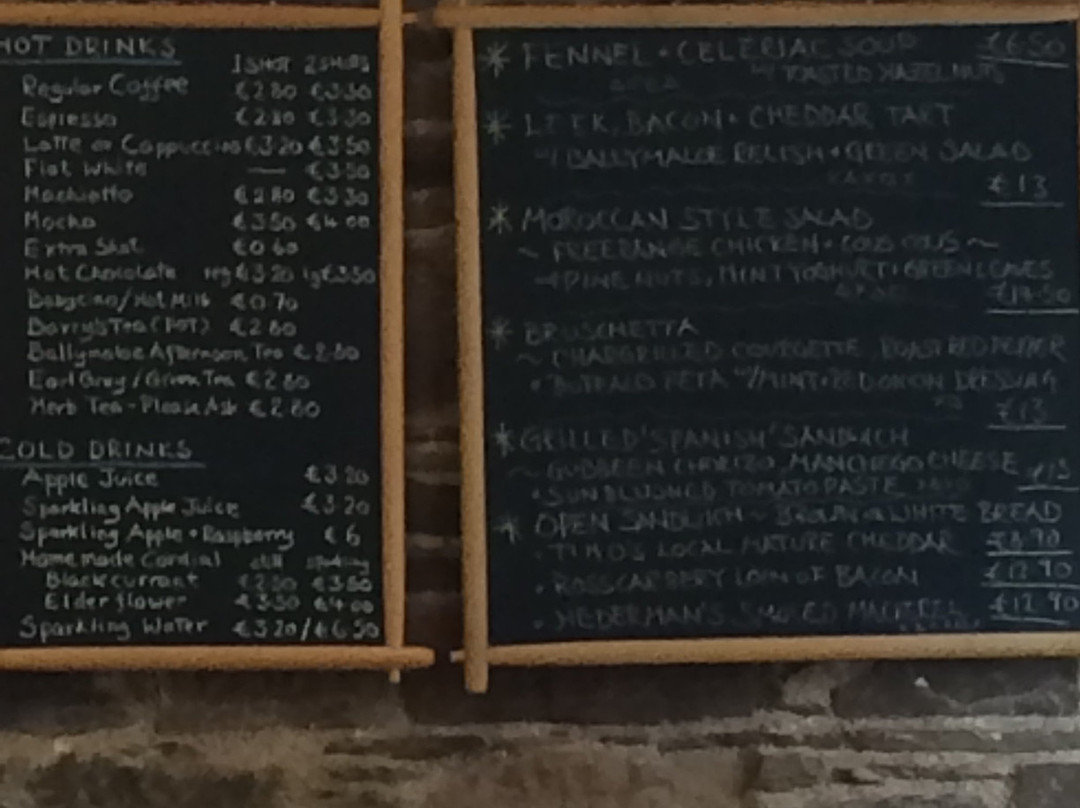 HOT DRINKS
1 SHOT 2 SHOTS
Regular Coffee €2.80 €3.30
Espresso €2.80 €3.30
Latte or Cappuccino €3.20 €3.50
Flat White — €3.50
Machiatto €2.80 €3.30
Mocha €3.50 €4.00
Extra Shot €0.60
Hot Chocolate reg €3.20 lg €3.50
Babycino/Hot Milk €0.70
Barry's Tea (POT) €2.60
Ballymaloe Afternoon Tea €2.80
Earl Grey/Green Tea €2.80
Herb Tea - Please Ask €2.80
COLD DRINKS
Apple Juice €3.20
Sparkling Apple Juice €3.20
Sparkling Apple + Raspberry €6
Homemade Cordial still sparkling
Blackcurrant €3.80
Elderflower €3.50 €4.00
Sparkling Water €3.20/€6.50
* FENNEL + CELERIAC SOUP €6.50
W/ TOASTED HAZELNUTS
* LEEK, BACON + CHEDDAR TART
W/ BALLYMALOE RELISH + GREEN SALAD
€13
* MOROCCAN STYLE SALAD
~ FREERANGE CHICKEN + COUS COUS ~
W/ PINE NUTS, MINT YOGHURT + GREEN LEAVES
* BRUSCHETTA
~ CHARGRILLED COURGETTE, ROAST RED PEPPER
+ BUFFALO FETA W/ MINT + RED ONION DRESSING
€13
* GRILLED 'SPANISH' SANDWICH
~ GUBBEEN CHORIZO, MANCHEGO CHEESE €13
+ SUNBLUSHED TOMATO PASTE
* OPEN SANDWICH ~ BROWN or WHITE BREAD
LOCAL MATURE CHEDDAR
ROSSCARBERY LOIN OF BACON €12.90
HEDERMAN'S SMOKED MACKEREL €12.90